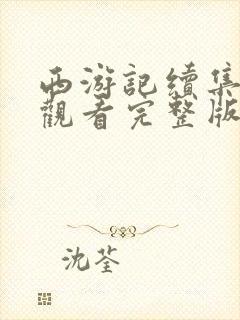 西游記續集
觀看完整版
沈荃